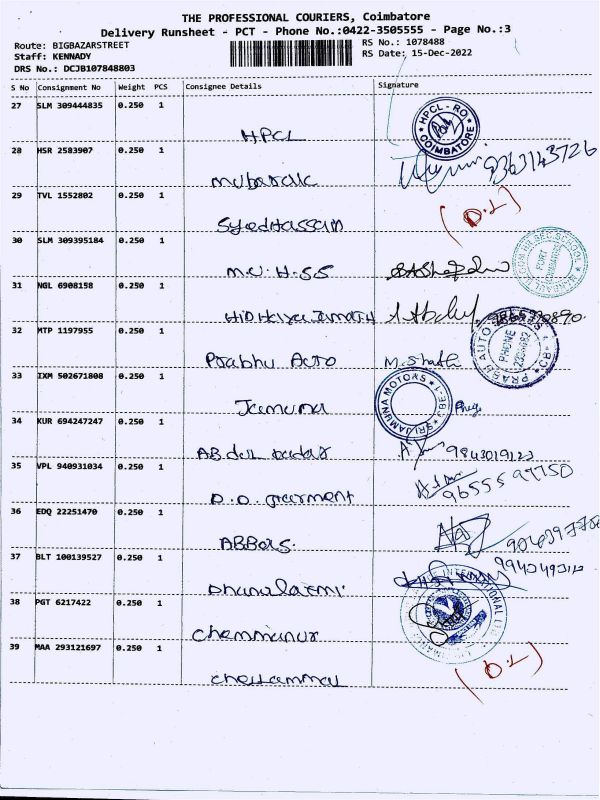 THE PROFESSIONAL COURIERS, Coimbatore
Delivery Runsheet - PCT - Phone No.:0422-3505555 - Page No.:3
Route: BIGBAZARSTREET
Staff: KENNADY
DRS No.: DCJB107848803
RS No.: 1078488
RS Date: 15-Dec-2022
S No Consignment No Weight PCS Consignee Details Signature
27 SLM 309444835 0.250 1
HPCL
HPCL-RO COIMBATORE
28 HSR 2583907 0.250 1
Mubarak
9363143726
29 TVL 1552802 0.250 1
Syed Hassan
(D.L)
30 SLM 309395184 0.250 1
M.U.H.SS
HR SEC SCHOOL
FORT
31 NGL 6908158 0.250 1
32 MTP 1197955 0.250 1
Prabhu Auto
PHONE
33 IXM 502671808 0.250 1
Jamuna
SRI JAMUNA MOTORS
34 KUR 694247247 0.250 1
9843019123
35 VPL 940931034 0.250 1
D.D. garment
36 EDQ 22251470 0.250 1
ABBAS.
37 BLT 100139527 0.250 1
Dhanalaxmi.
38 PGT 6217422 0.250 1
Chemmanur
INTERNATIONAL
39 MAA 293121697 0.250 1
(D.L)